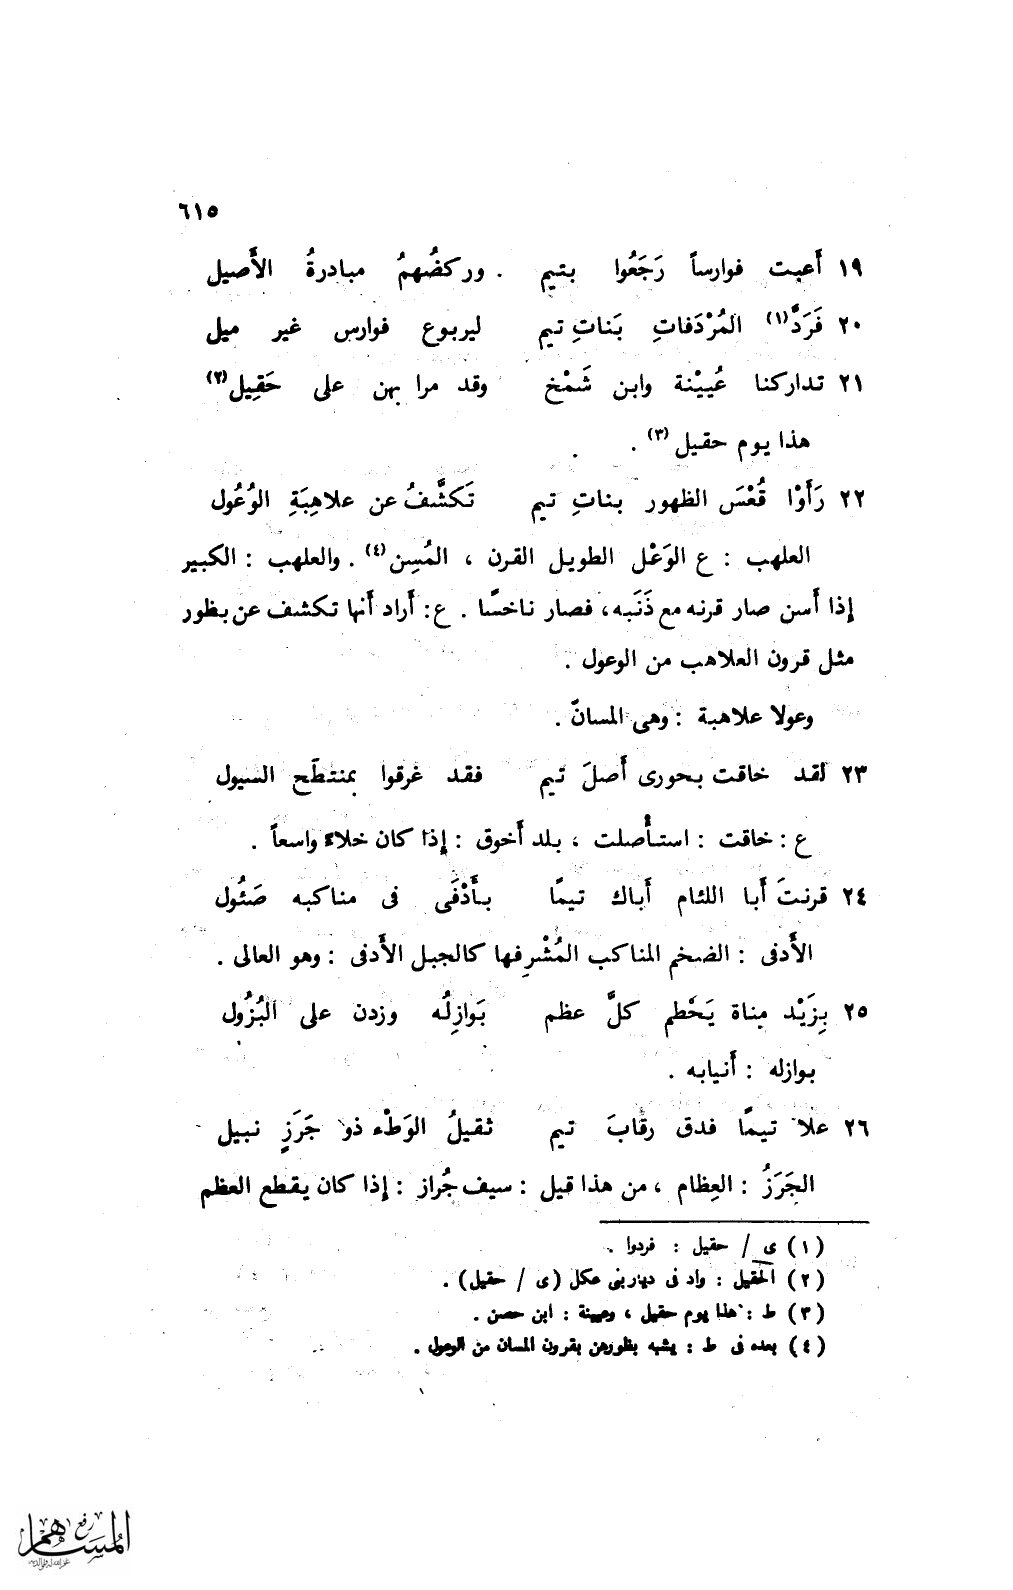 ٦١٥
١٩ أَعبت فوارساً رَجَعُوا بتيم . وركضُهمُ مبادرةُ الأَصيل
٢٠ فَرَدَّ(١) المُرْدَفاتِ بَناتِ تيم ليربوع فوارس غير ميل
٢١ تداركنا عُيَيْنة وابن شَمْخ وقد مرا بهن على حَقِيل(٢)
هذا يوم حقيل(٣) .
٢٢ رَأَوْا قُعْسَ الظهور بناتِ تيم تَكَشَّفُ عن علاهِبَةِ الوُعُول
العلهب : ع الوَعْل الطويل القرن ، المُسِن(٤) . والعلهب : الكبير
إذا أَسن صار قرنه مع ذَنَبه ، فصار ناخسًا . ع : أَراد أَنها تكشف عن بظور
مثل قرون العلاهب من الوعول .
وعولا علاهبة : وهى المسانّ .
٢٣ لقد خاقت بحورى أَصلَ تيم فقد غرقوا بمنتطَح السيول
ع : خاقت : استأْصلت ، بلد أَخوق : إذا كان خلاءً واسعاً .
٢٤ قرنتَ أَبا اللئام أَباك تيمًا بأَدْفَى فى مناكبه صَئُول
الأَدفى : الضخم المناكب المُشْرِفها كالجبل الأَدفى : وهو العالى .
٢٥ بِزَيْد مناة يَحْطم كلَّ عظم بَوازِلُه وزدن على البُزُول
بوازله : أَنيابه .
٢٦ علا تيمًا فدق رقابَ تيم ثقيلُ الوَطْء ذو جَرَزٍ نبيل
الجَرَزُ : العِظام ، من هذا قيل : سيف جُراز : إذا كان يقطع العظم
(١) ى / حقيل : فردوا .
(٢) الحقيل : واد فى ديار بنى عكل (ى / حقيل) .
(٣) ط : هذا يوم حقيل ، وعيينة : ابن حصن .
(٤) بعده فى ط : يشبه بظورهن بقرون المسان من الوعول .